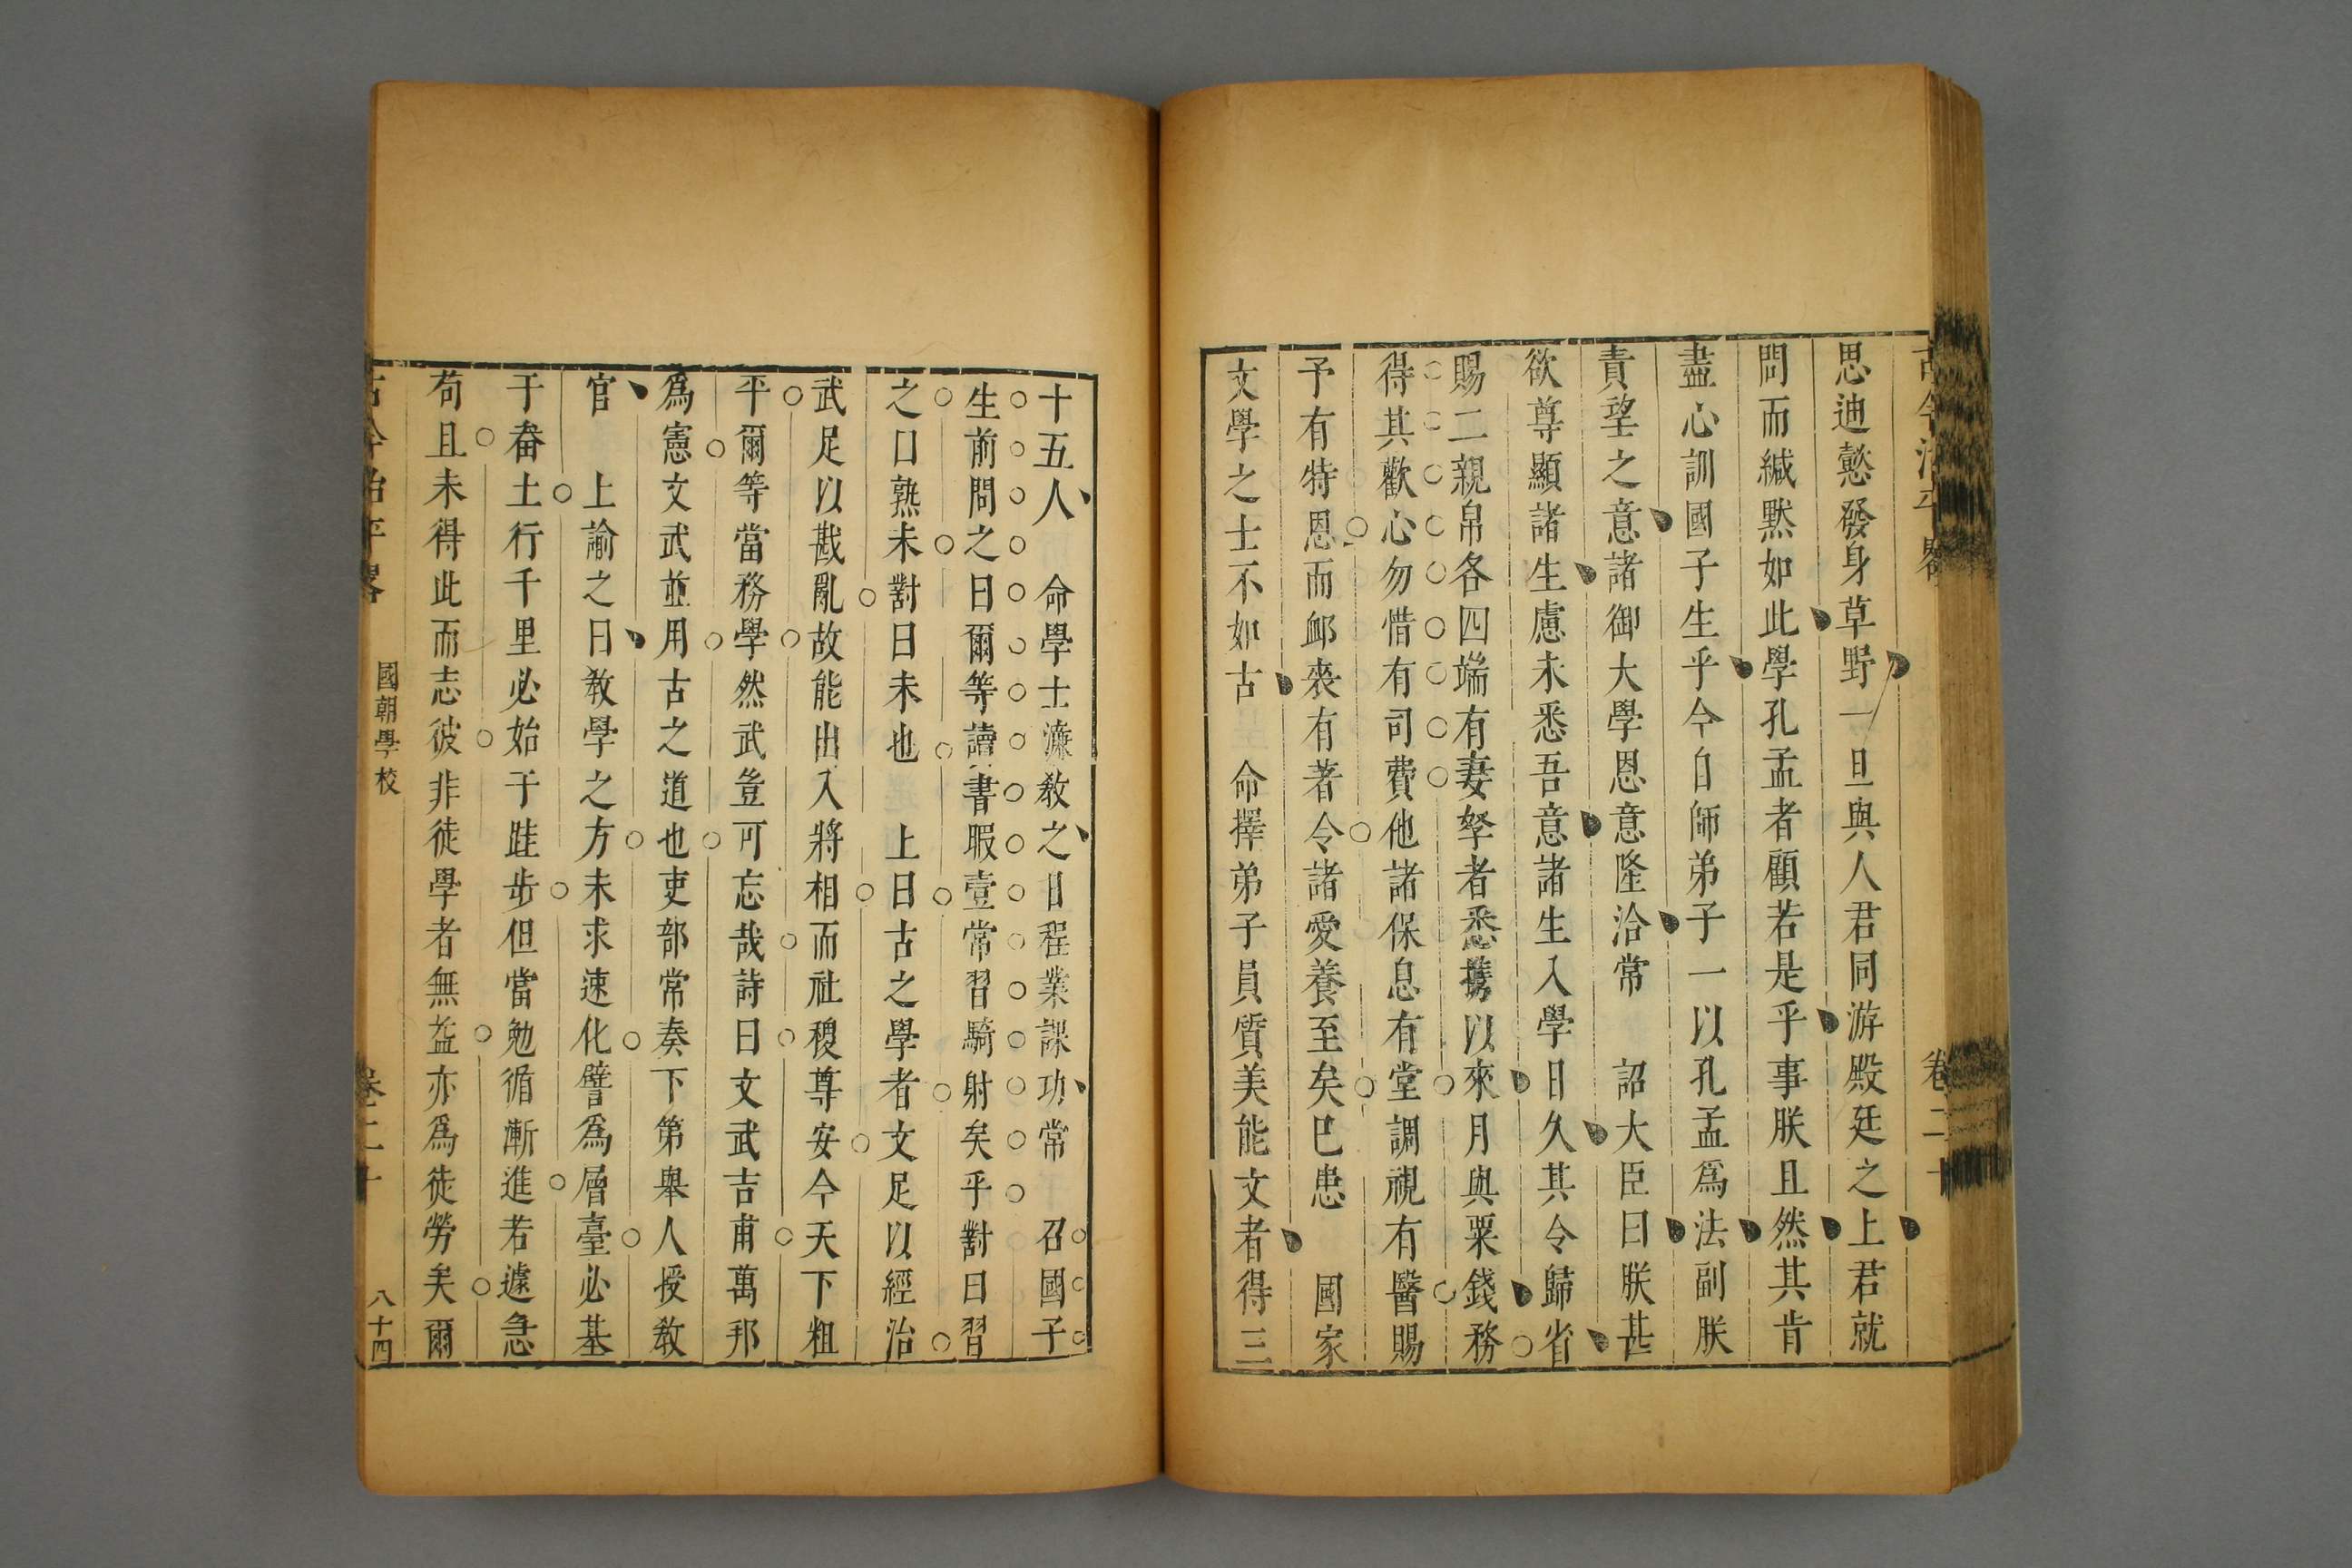 古今治平畧 卷二十
思迪懃發身草野一旦與人君同游殿廷之上君就
問而緘默如此學孔孟者顧若是乎事朕且然其肯
盡心訓國子生乎今自師弟子一以孔孟爲法副朕
責望之意諸御大學恩意隆洽常 詔大臣曰朕甚
欲尊顯諸生慮未悉吾意諸生入學日久其令歸省
賜二親帛各四端有妻孥者悉攜以來月與粟錢務
得其歡心勿惜有司費他諸保息有堂調視有醫賜
予有特恩而䘏喪有著令諸愛養至矣巳患 國家
文學之士不如古 命擇弟子員質美能文者得三
十五人 命學士濂教之日程業課功常 召國子
生前問之曰爾等讀書暇壹常習騎射矣乎對曰習
之口熟未對曰未也 上曰古之學者文足以經治
武足以戡亂故能出入將相而社稷尊安今天下粗
平爾等當務學然武豈可忘哉詩曰文武吉甫萬邦
爲憲文武並用古之道也吏部常奏下第舉人授教
官 上諭之曰教學之方未求速化譬爲層臺必基
于畚土行千里必始于跬步但當勉循漸進若遽急
苟且未得此而志彼非徒學者無益亦爲徒勞矣爾
古今治平畧 國朝學校 卷二十 八十四